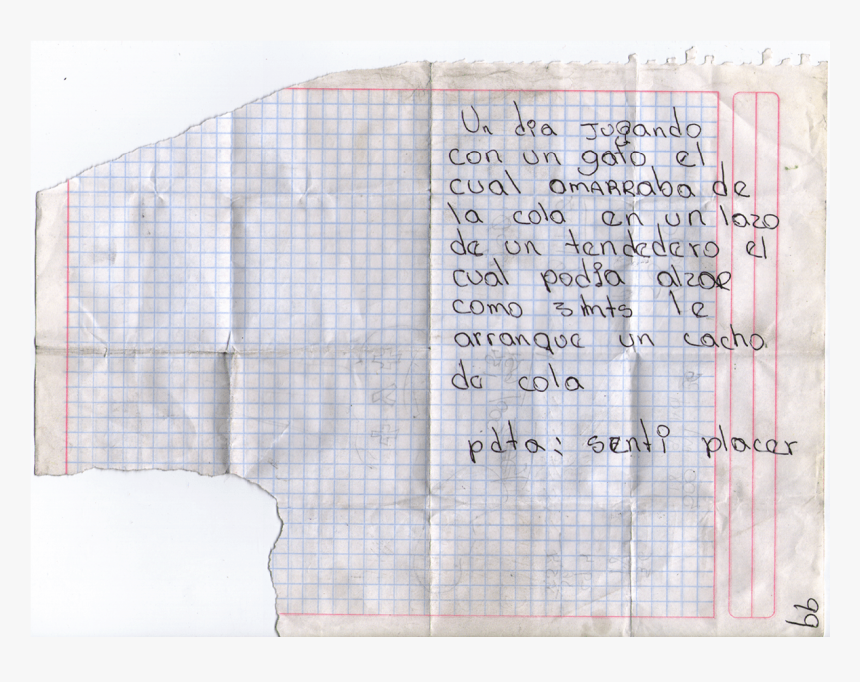 Un dia jugando
con un gato el
cual amarraba de
la cola en un lazo
de un tendedero el
cual podia alzar
como 3 mts le
arranque un cacho
de cola
pdta: senti placer
bb